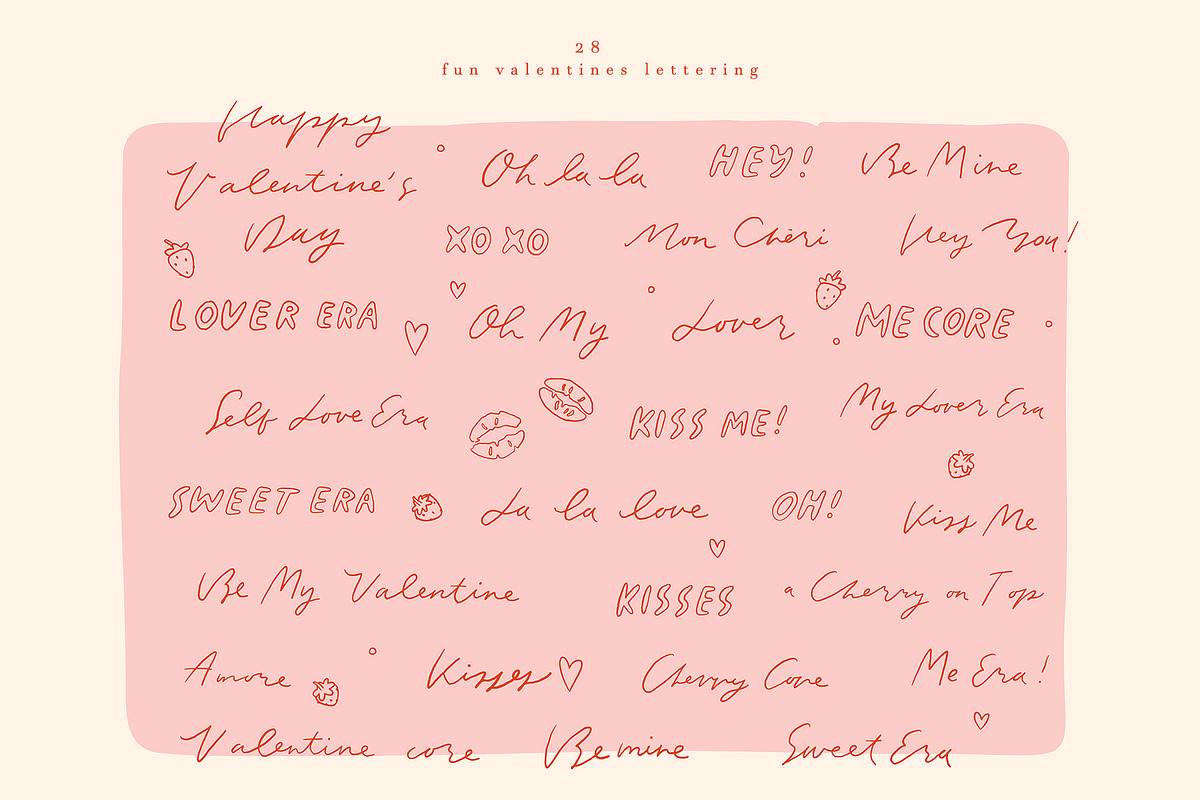 28
fun valentines lettering
Happy
Valentine's
Day
Oh la la
HEY!
Be Mine
XO XO
Mon Chèri
Hey You!
LOVER ERA
Oh My
Lover
ME CORE
Self Love Era
KISS ME!
My Lover Era
SWEET ERA
La la love
OH!
Kiss Me
Be My Valentine
KISSES
a Cherry on Top
Amore
Kisses
Cherry Core
Me Era!
Valentine core
Be mine
Sweet Era